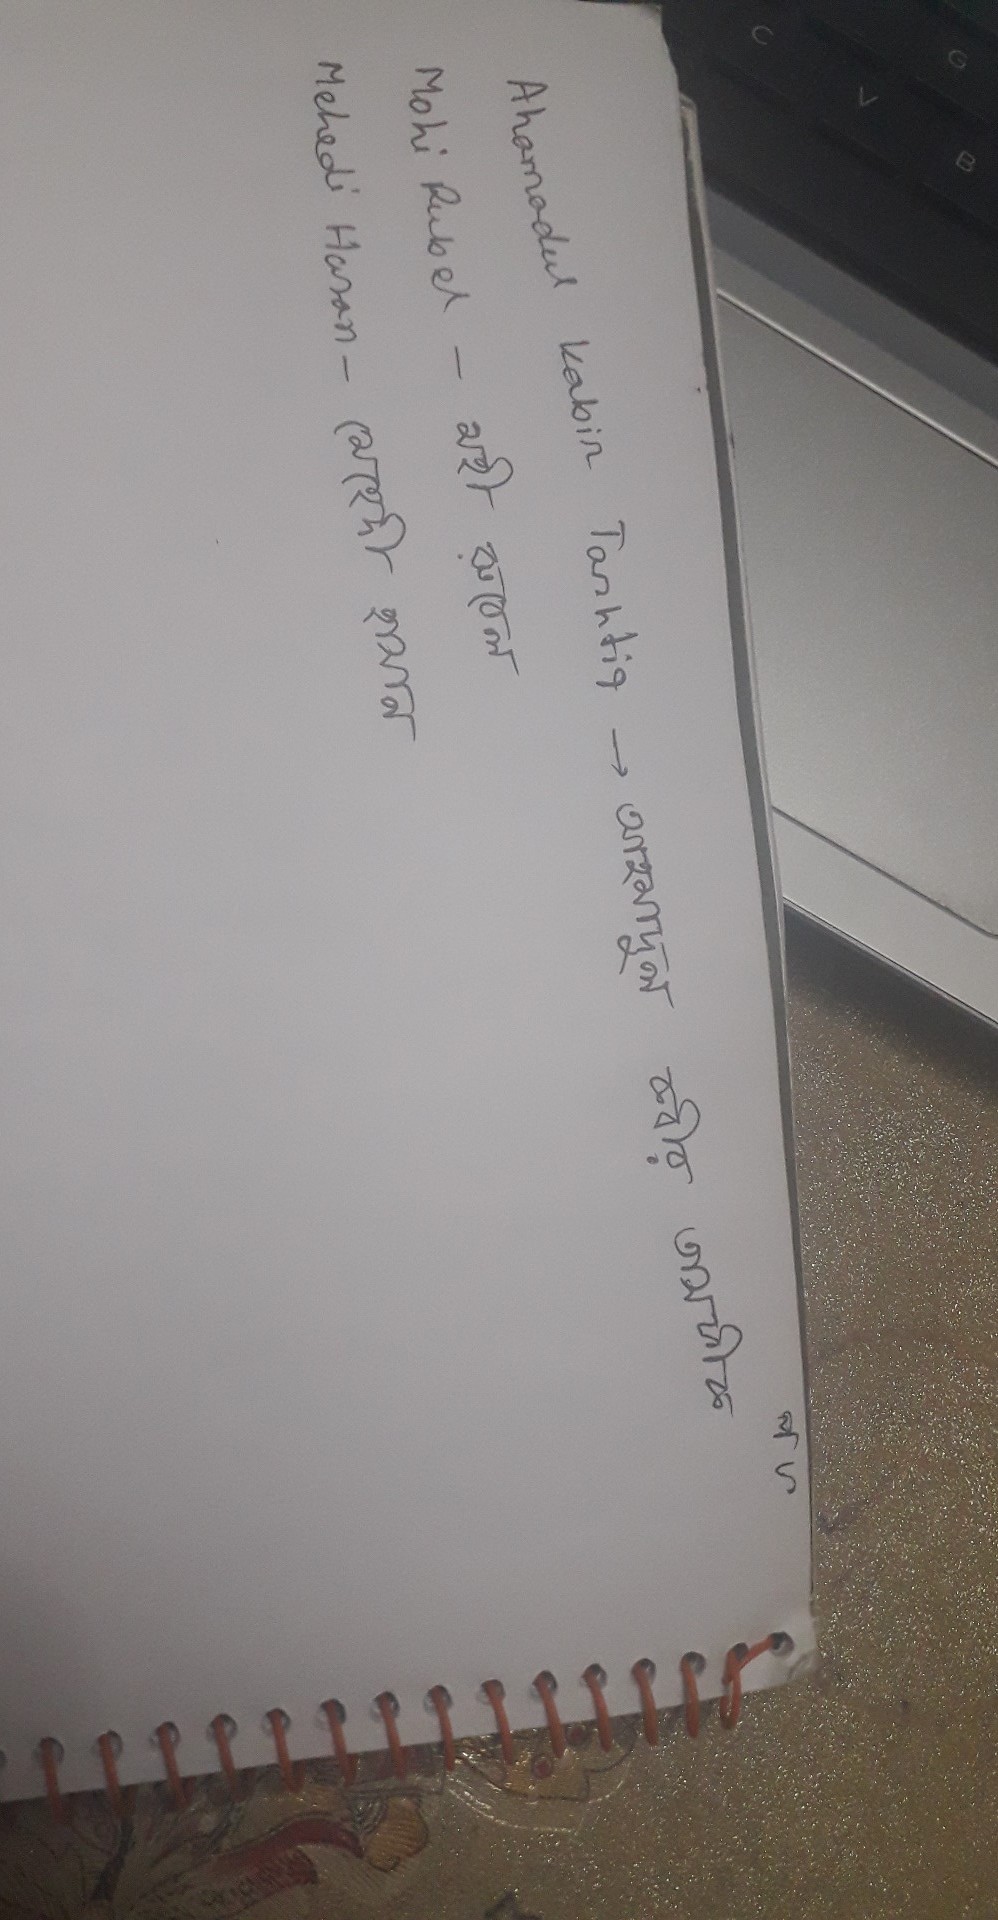 Ahamadul Kabir Tashtiq → আহমাদুল কবির তাসতিক
Mohi Rubel – মহী রুবেল
Mehedi Hasan – মেহেদী হাসান
C
V
G
B